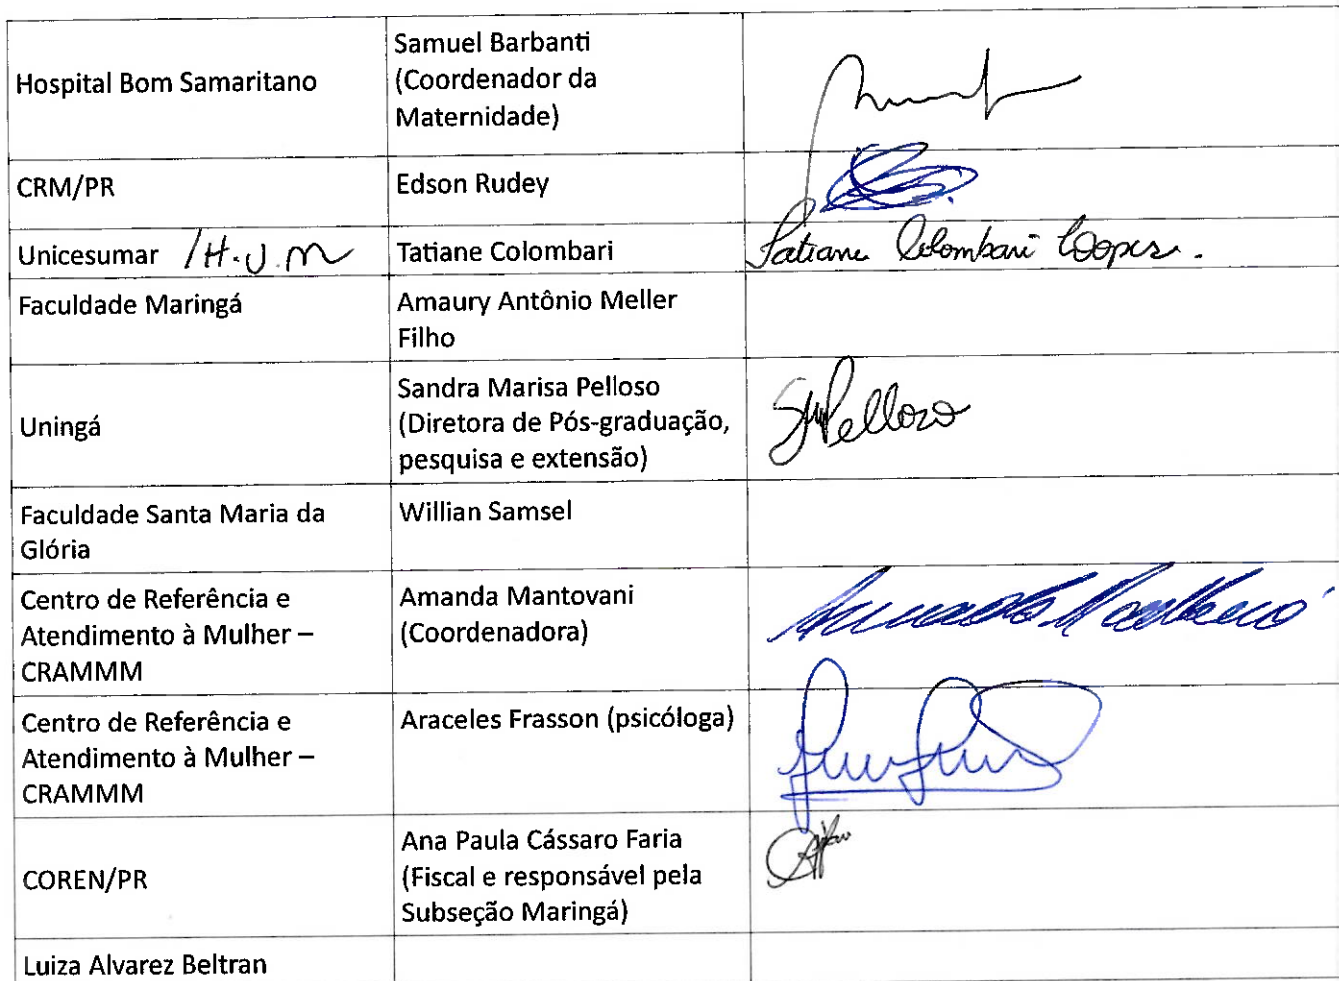 Hospital Bom Samaritano
Samuel Barbanti
(Coordenador da
Maternidade)
CRM/PR
Edson Rudey
Unicesumar /H.U.M
Tatiane Colombari
Tatiane Colombari Lopes.
Faculdade Maringá
Amaury Antônio Meller
Filho
Uningá
Sandra Marisa Pelloso
(Diretora de Pós-graduação,
pesquisa e extensão)
SMPelloso
Faculdade Santa Maria da
Glória
Willian Samsel
Centro de Referência e
Atendimento à Mulher –
CRAMMM
Amanda Mantovani
(Coordenadora)
Centro de Referência e
Atendimento à Mulher –
CRAMMM
Araceles Frasson (psicóloga)
COREN/PR
Ana Paula Cássaro Faria
(Fiscal e responsável pela
Subseção Maringá)
Luiza Alvarez Beltran